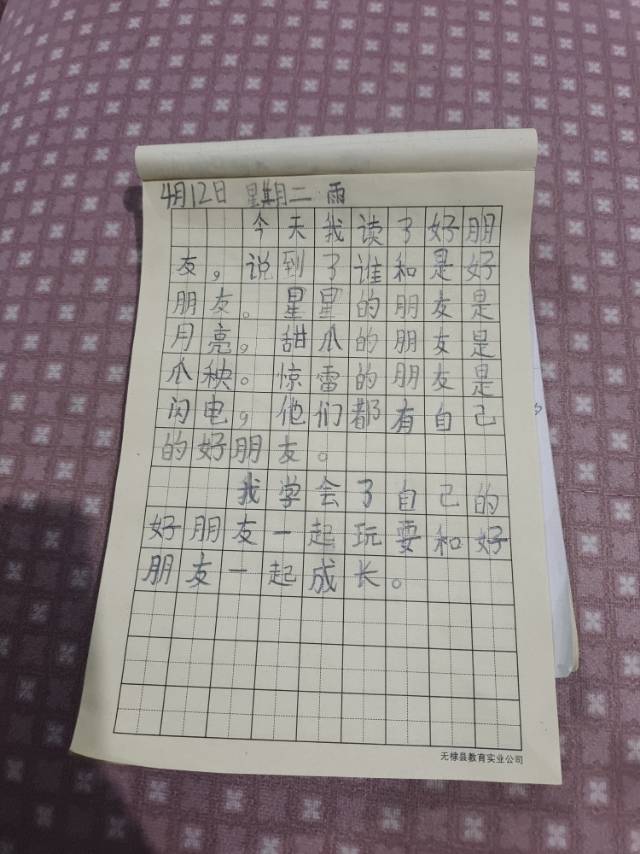 4月12日 星期二 雨
今天我读了好朋
友，说到了谁和是好
朋友。星星的朋友是
月亮，甜瓜的朋友是
瓜秧。惊雷的朋友是
闪电，他们都有自己
的好朋友。
我学会了自己的
好朋友一起玩耍和好
朋友一起成长。
无棣县教育实业公司